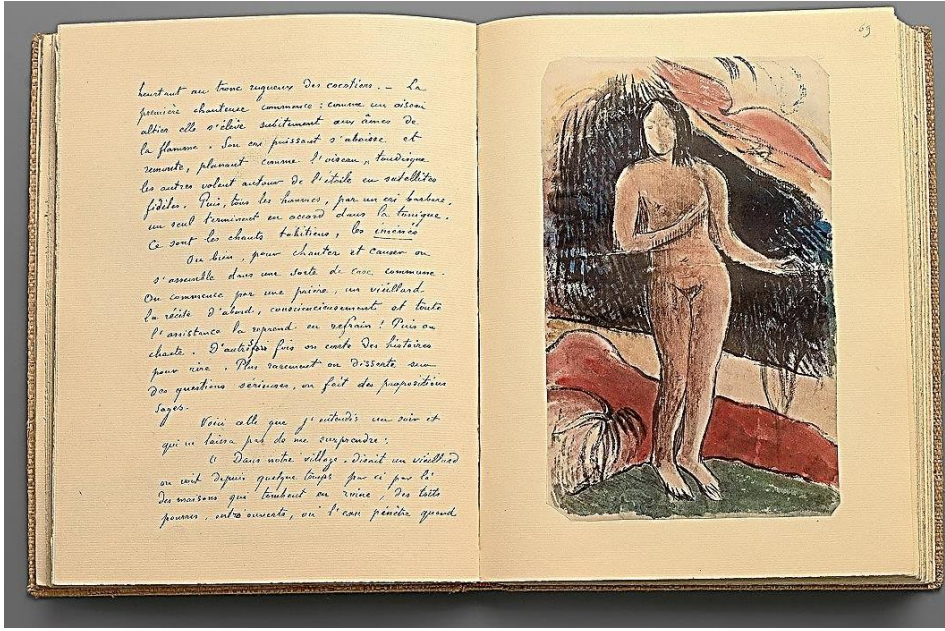 heurtant au tronc rugueux des cocotiers. — La
première chanteuse commence : comme un oiseau
altier elle s'élève subitement aux âmes de
la flamme. Son cri puissant s'abaisse et
remonte, planant comme l'oiseau, tandisque
les autres volent autour de l'étoile en satellites
fidèles. Puis, tous les hommes, par un cri barbare,
un seul terminent en accord dans la tonique.
Ce sont les chants tahitiens, les
Ou bien, pour chanter et causer on
s'assemble dans une sorte de case commune.
On commence par une prière, un vieillard
la récite d'abord, consciencieusement et toute
l'assistance la reprend en refrain ! Puis on
chante. fois on conte des histoires
pour rire. Plus rarement on disserte sur
des questions sérieuses, on fait des propositions
sages.
Voici celle que j'entendis un soir et
qui ne laissa pas de me surprendre :
« Dans notre village, disait un vieillard
on voit depuis quelque temps par ci par là
des maisons qui tombent en ruine, des toits
pourris, entr'ouverts, où l'eau pénètre quand
69